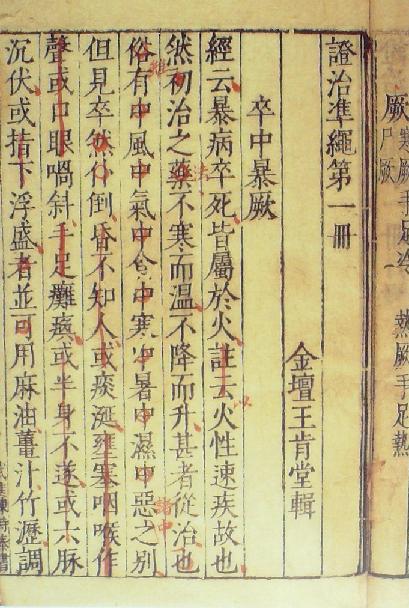 厥寒厥手足冷 熱厥手足熱
尸厥
證治準繩第一冊
金壇王肯堂輯
卒中暴厥
經云暴病卒死皆屬於火註云火性速疾故也
然初治之藥不寒而溫不降而升甚者從治也
俗有中風中氣中食中寒中暑中濕中惡之別
但見卒然仆倒昏不知人或痰涎壅塞咽喉作
聲或口眼喎斜手足癱瘓或半身不遂或六脉
沉伏或指下浮盛者並可用麻油薑汁竹瀝調